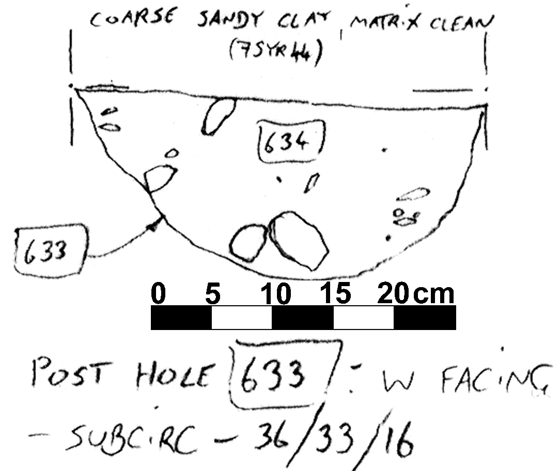 COARSE SANDY CLAY, MATRIX CLEAN
(7SYR44)
634
633
0 5 10 15 20 cm
POST HOLE 633 : W FACING
- SUBCIRC - 36/33/16